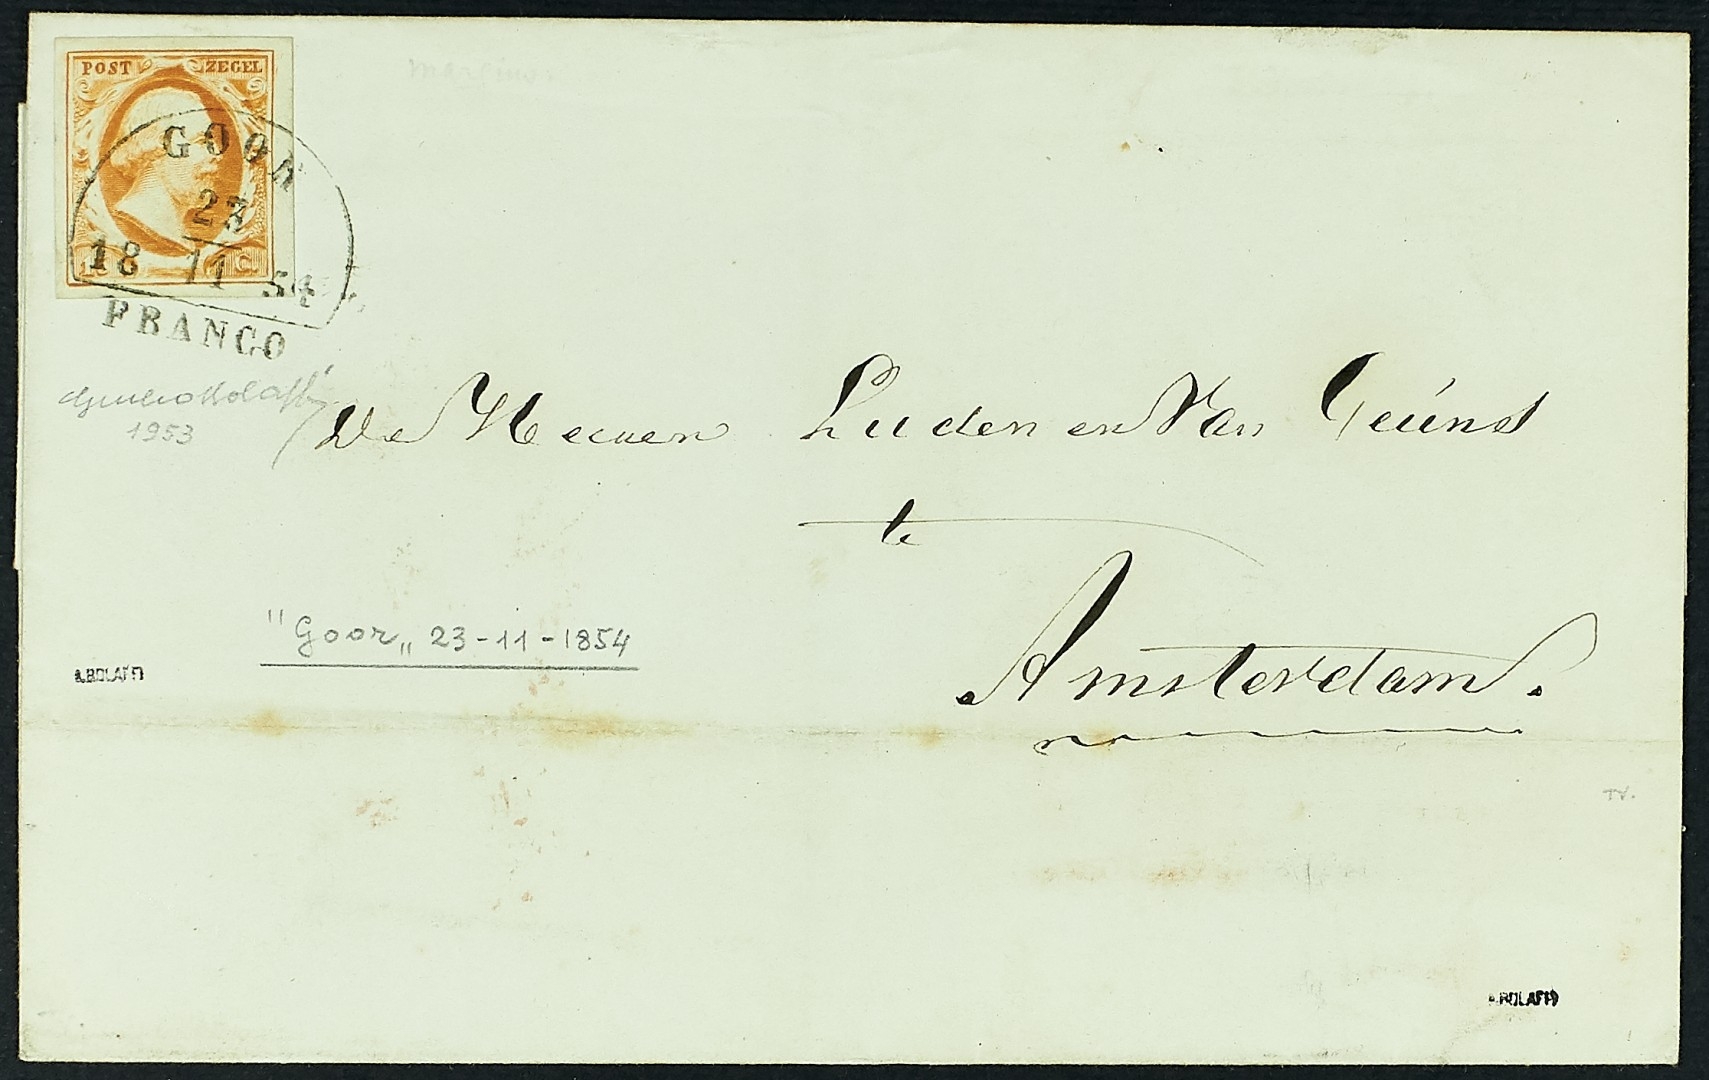 POST ZEGEL
GOOR
23
18 11 54
15 C.
FRANCO
1953
De Heeren Luden en Van Geúns
te
Amsterdam.
"Goor„ 23-11-1854
A. BOLAFFI
TV.
A. BOLAFFI